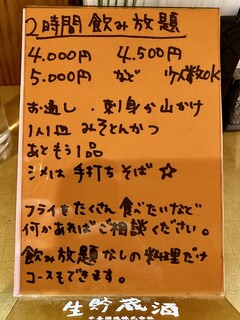 2時間飲み放題
4.000円 4.500円
5.000円 など 少人数OK
お通し . 刺身か山かけ
1人1皿 みそとんかつ
あともう1品
シメは 手打ちそば☆
フライをたくさん食べたいなど
何かあればご相談ください。
飲み放題なしの料理だけ
コースもできます。
生貯蔵酒